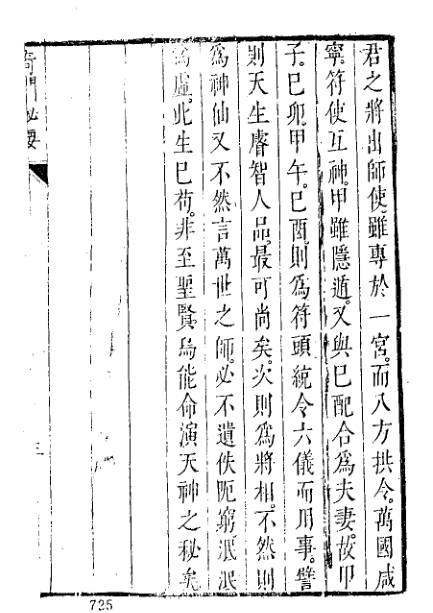 君之將出師使雖專於一宮。而八方拱令。萬國咸
寧。符使互神。甲雖隱遁。又與已配合爲夫妻。故甲
子。已卯。甲午。已酉。則爲符頭統令六儀而用事。譬
則天生睿智人品。最可尚矣。次則爲將相。不然則
爲神仙又不然言萬世之師。必不遺佚阨窮泯泯
爲虛。此生已苟。非至聖賢。烏能命演天神之秘矣
奇門秘要
三
725